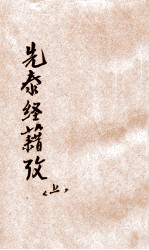 先秦経籍攷
上